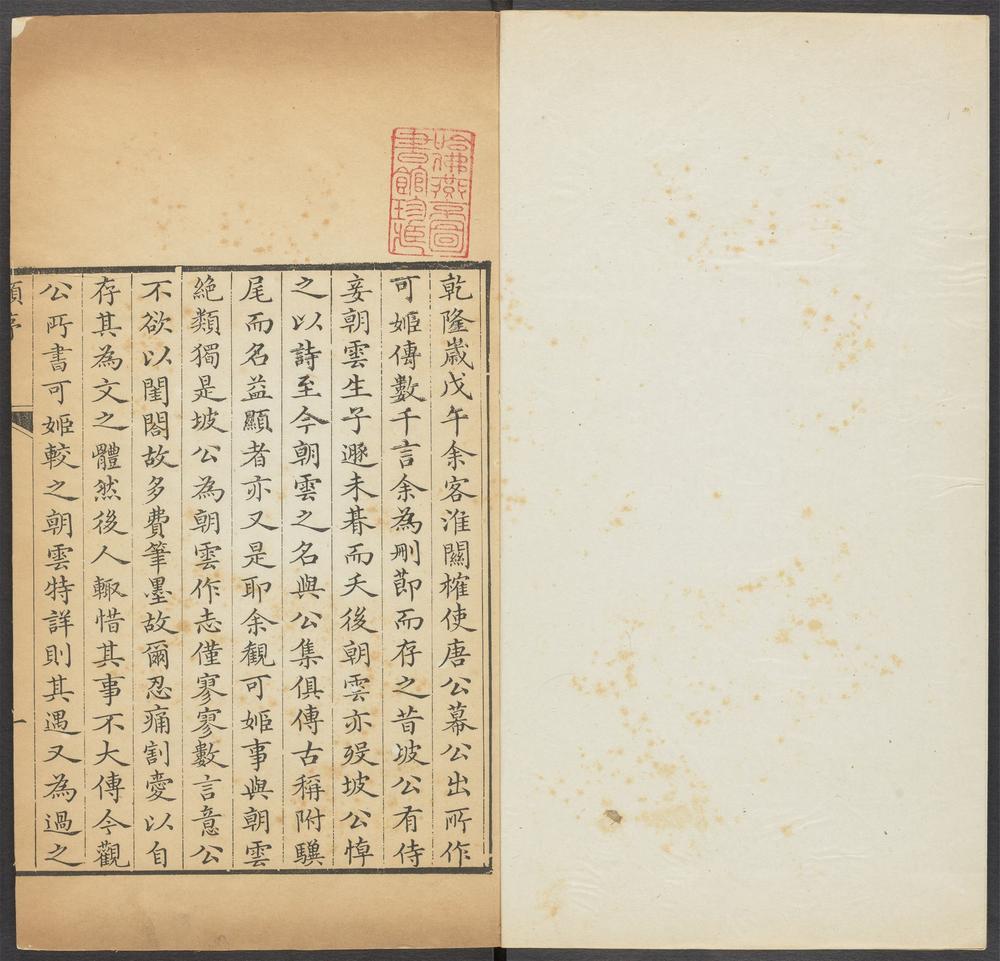 哈佛燕京圖
書館珍藏
乾隆歲戊午余客淮關榷使唐公幕公出所作
可姬傳數千言余為刪節而存之昔坡公有侍
妾朝雲生子遯未朞而夭後朝雲亦歿坡公悼
之以詩至今朝雲之名與公集俱傳古稱附驥
尾而名益顯者亦又是耶余觀可姬事與朝雲
絕類獨是坡公為朝雲作志僅寥寥數言意公
不欲以閨閤故多費筆墨故爾忍痛割愛以自
存其為文之體然後人輙惜其事不大傳今觀
公所書可姬較之朝雲特詳則其遇又為過之
顧序
一